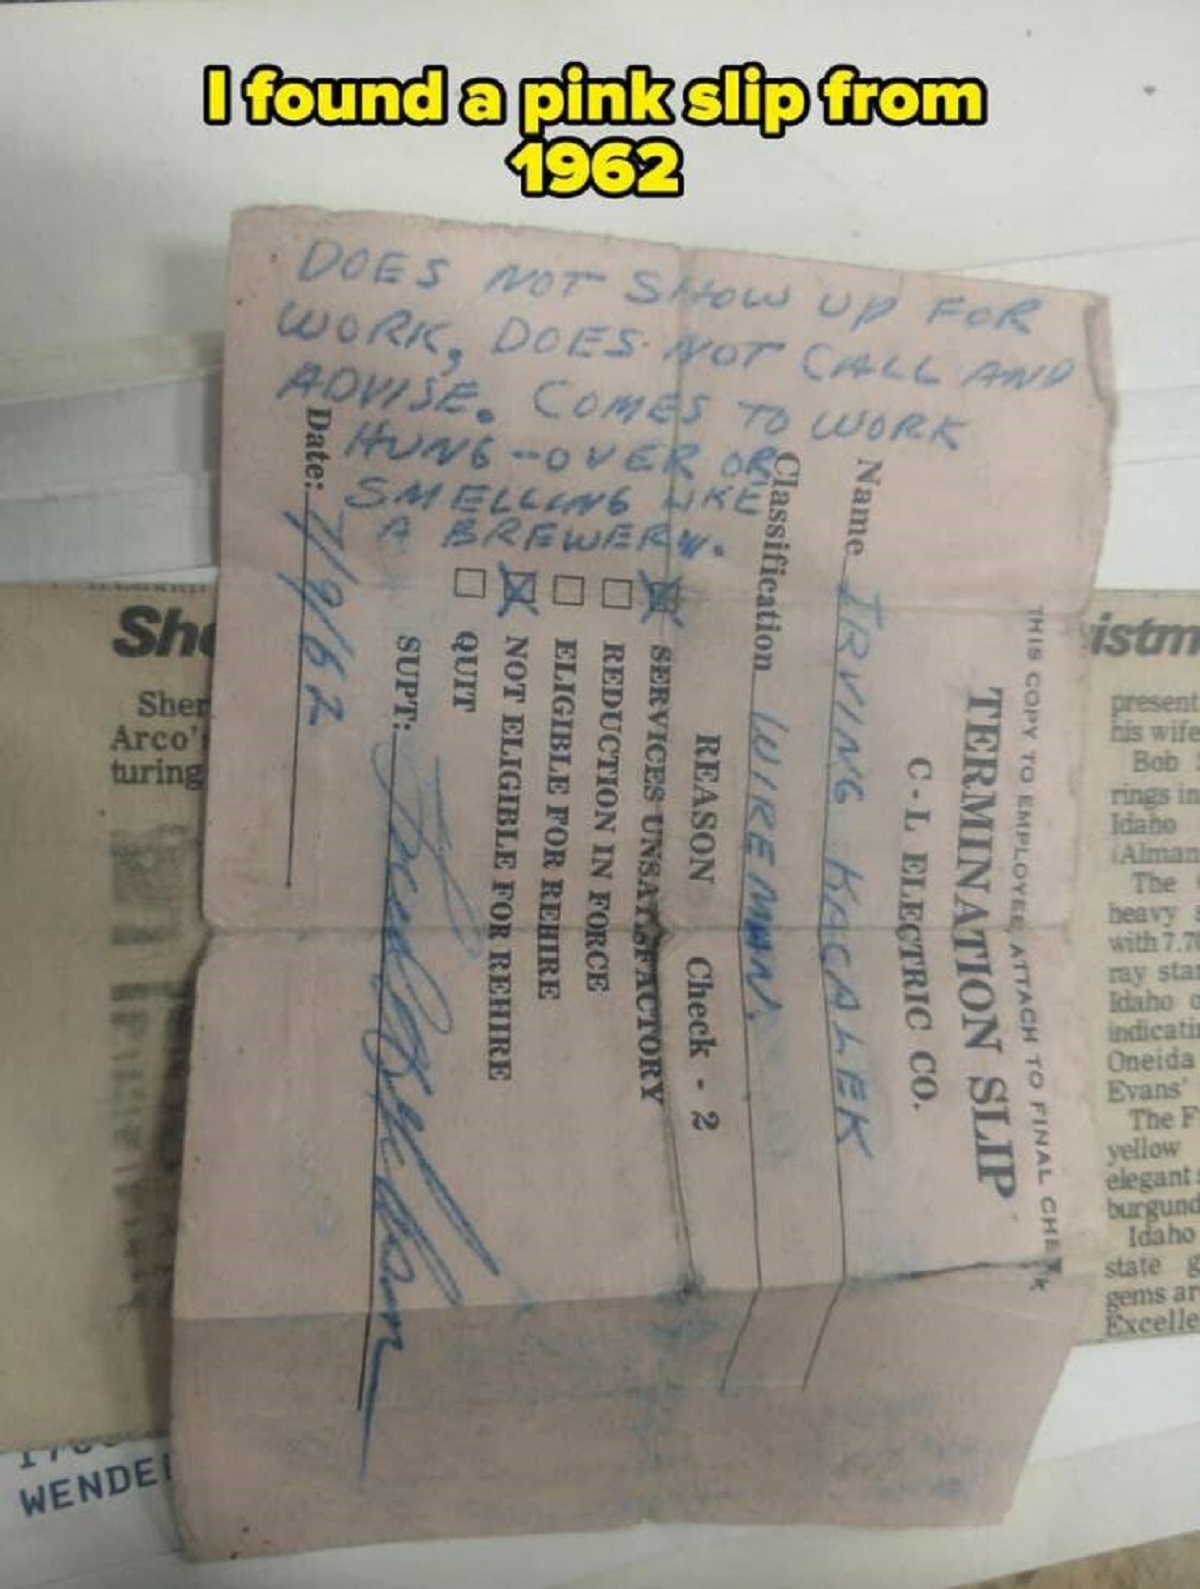 I found a pink slip from
1962
DOES NOT SHOW UP FOR
WORK, DOES NOT CALL AND
ADVISE. COMES TO WORK
HUNG-OVER OR
SMELLING LIKE
A BREWERY.
THIS COPY TO EMPLOYEE ATTACH TO FINAL CHECK
TERMINATION SLIP
C-L ELECTRIC CO.
Name IRVING KACALEK
Classification WIREMAN.
REASON Check - 2
SERVICES UNSATISFACTORY
REDUCTION IN FORCE
ELIGIBLE FOR REHIRE
NOT ELIGIBLE FOR REHIRE
QUIT
SUPT:
Date: 7/9/62
Sher
Arco's
turing
istm
present
his wife
Bob
rings in
Idaho
(Alman
The
heavy
with 7.7
ray star
Idaho
indicati
Oneida
Evans'
The F
yellow
elegant
burgund
Idaho
state g
gems ar
Excelle
WENDE